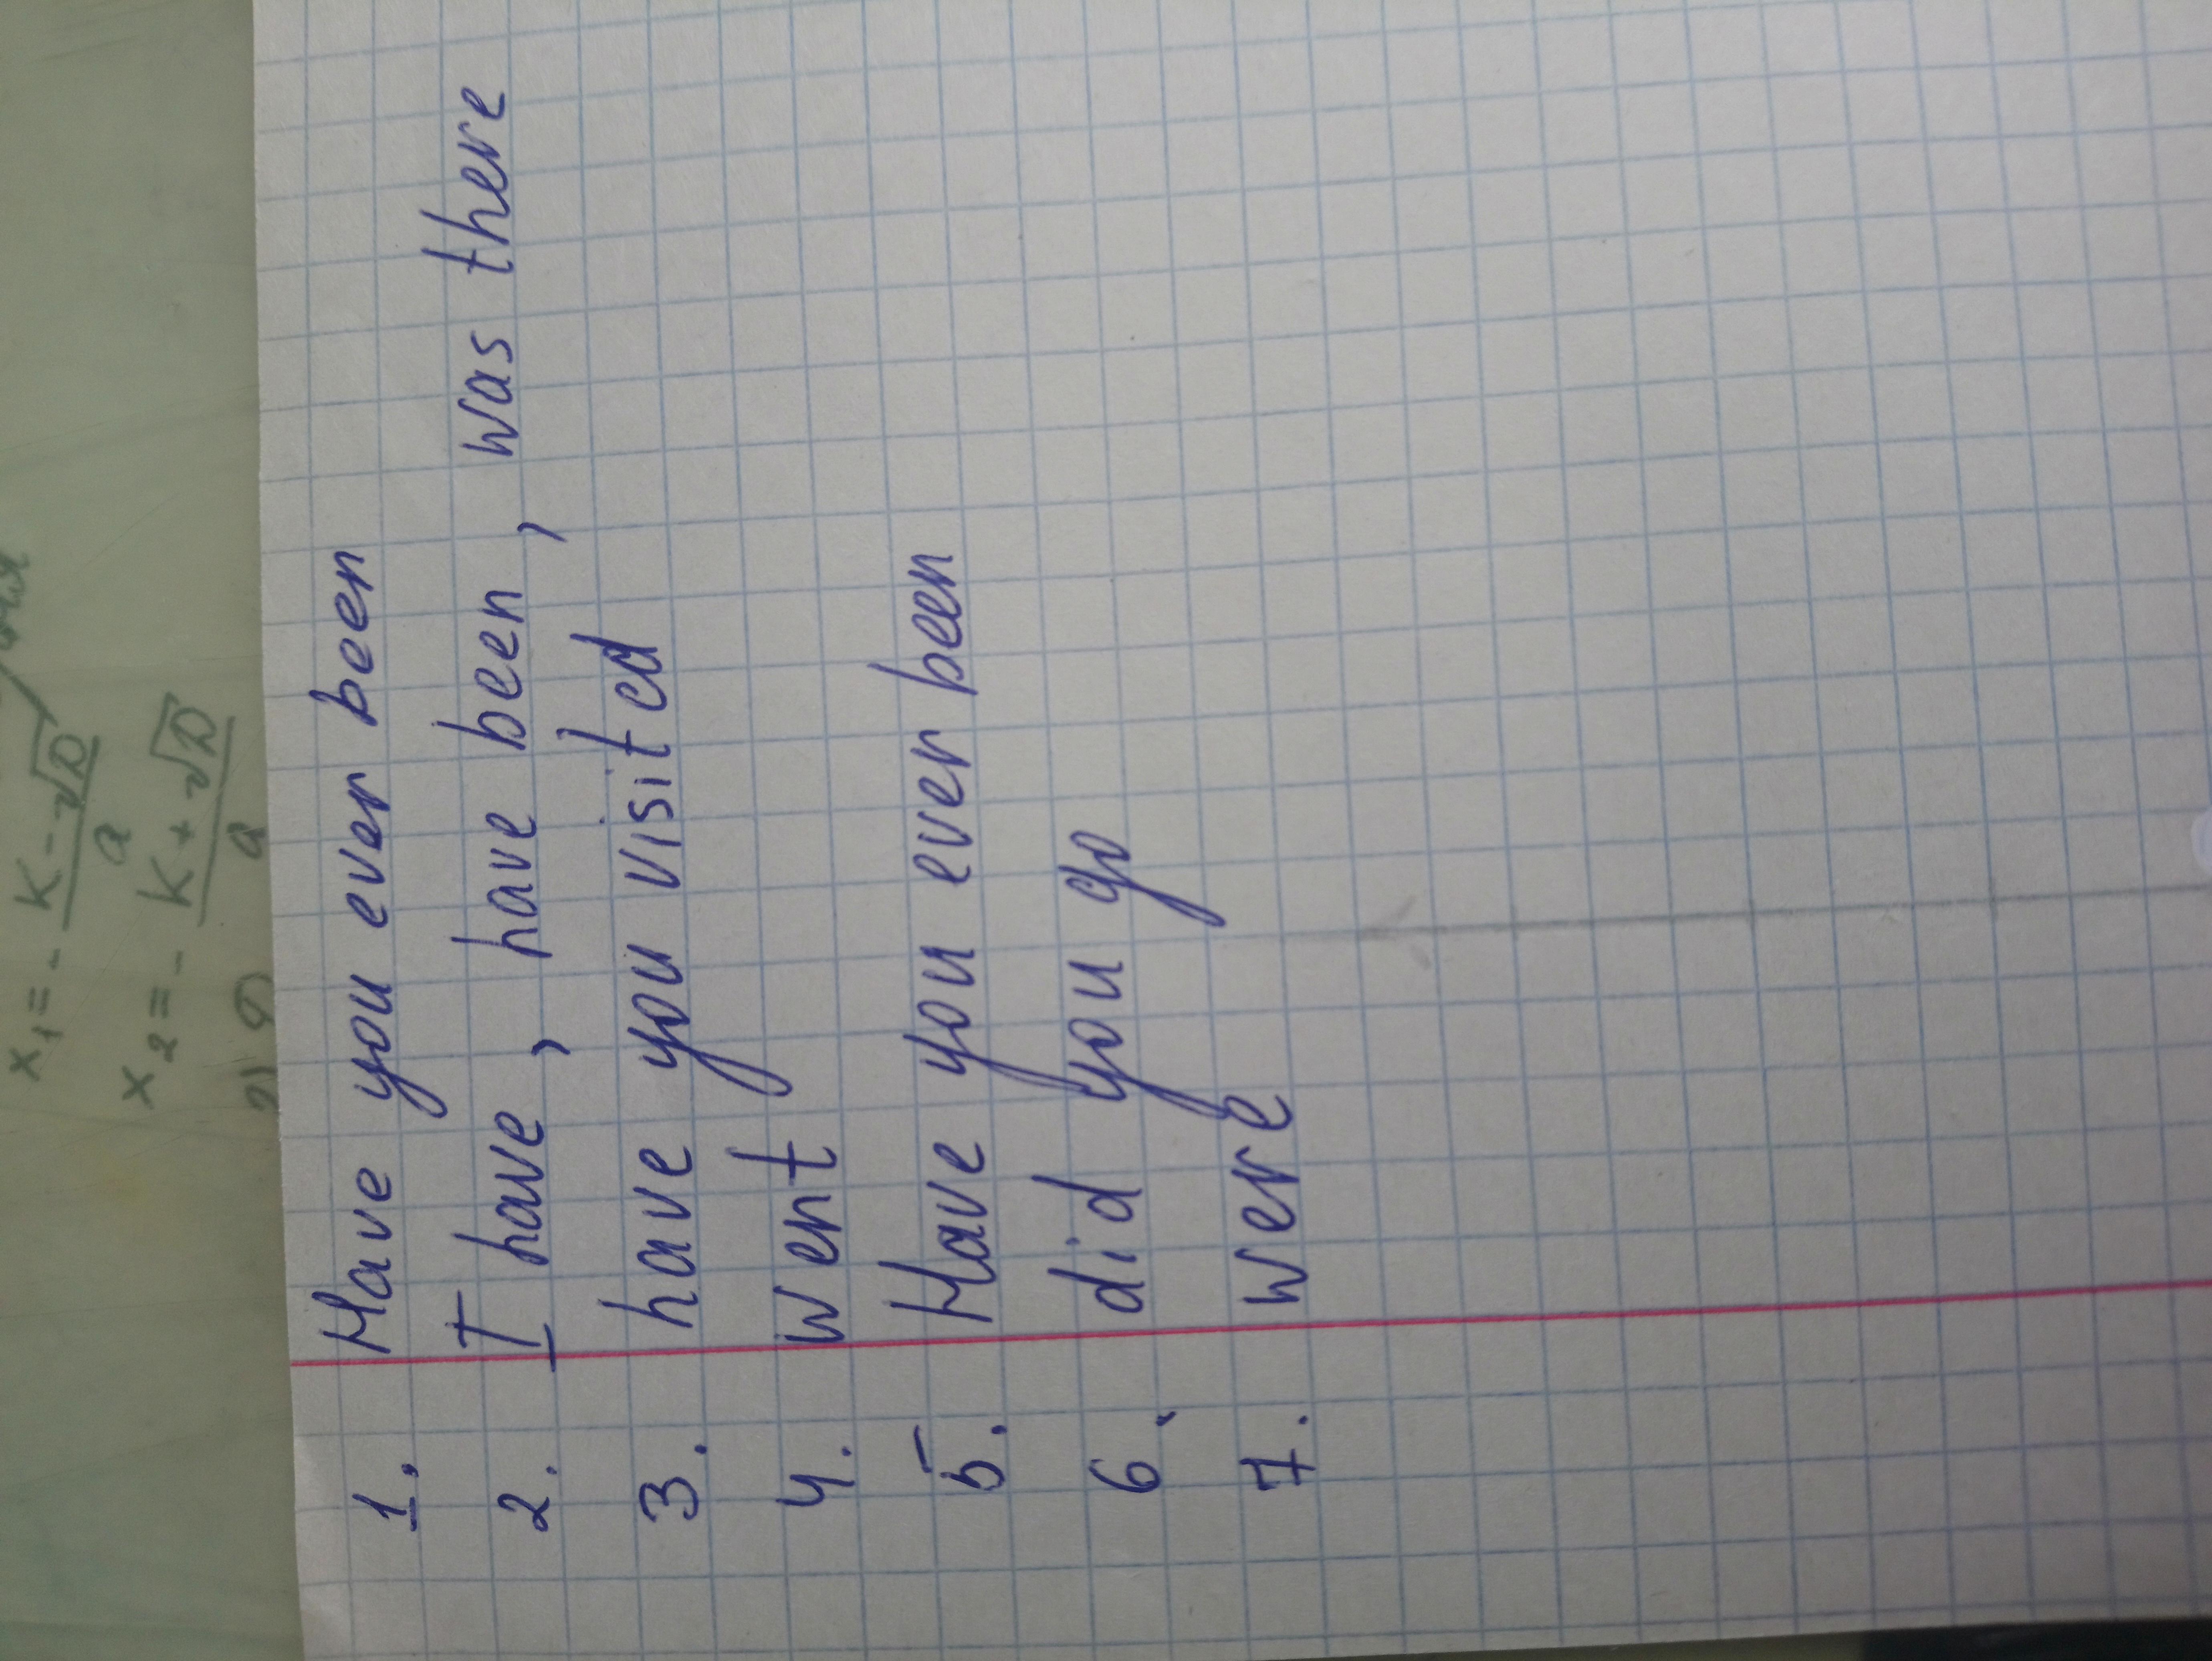 x₁ = - K - √D / a
x₂ = - K + √D / a
1. Have you ever been
2. I have, have been, was there
3. have you visited
4. went
5. Have you ever been
6. did you go
7. were